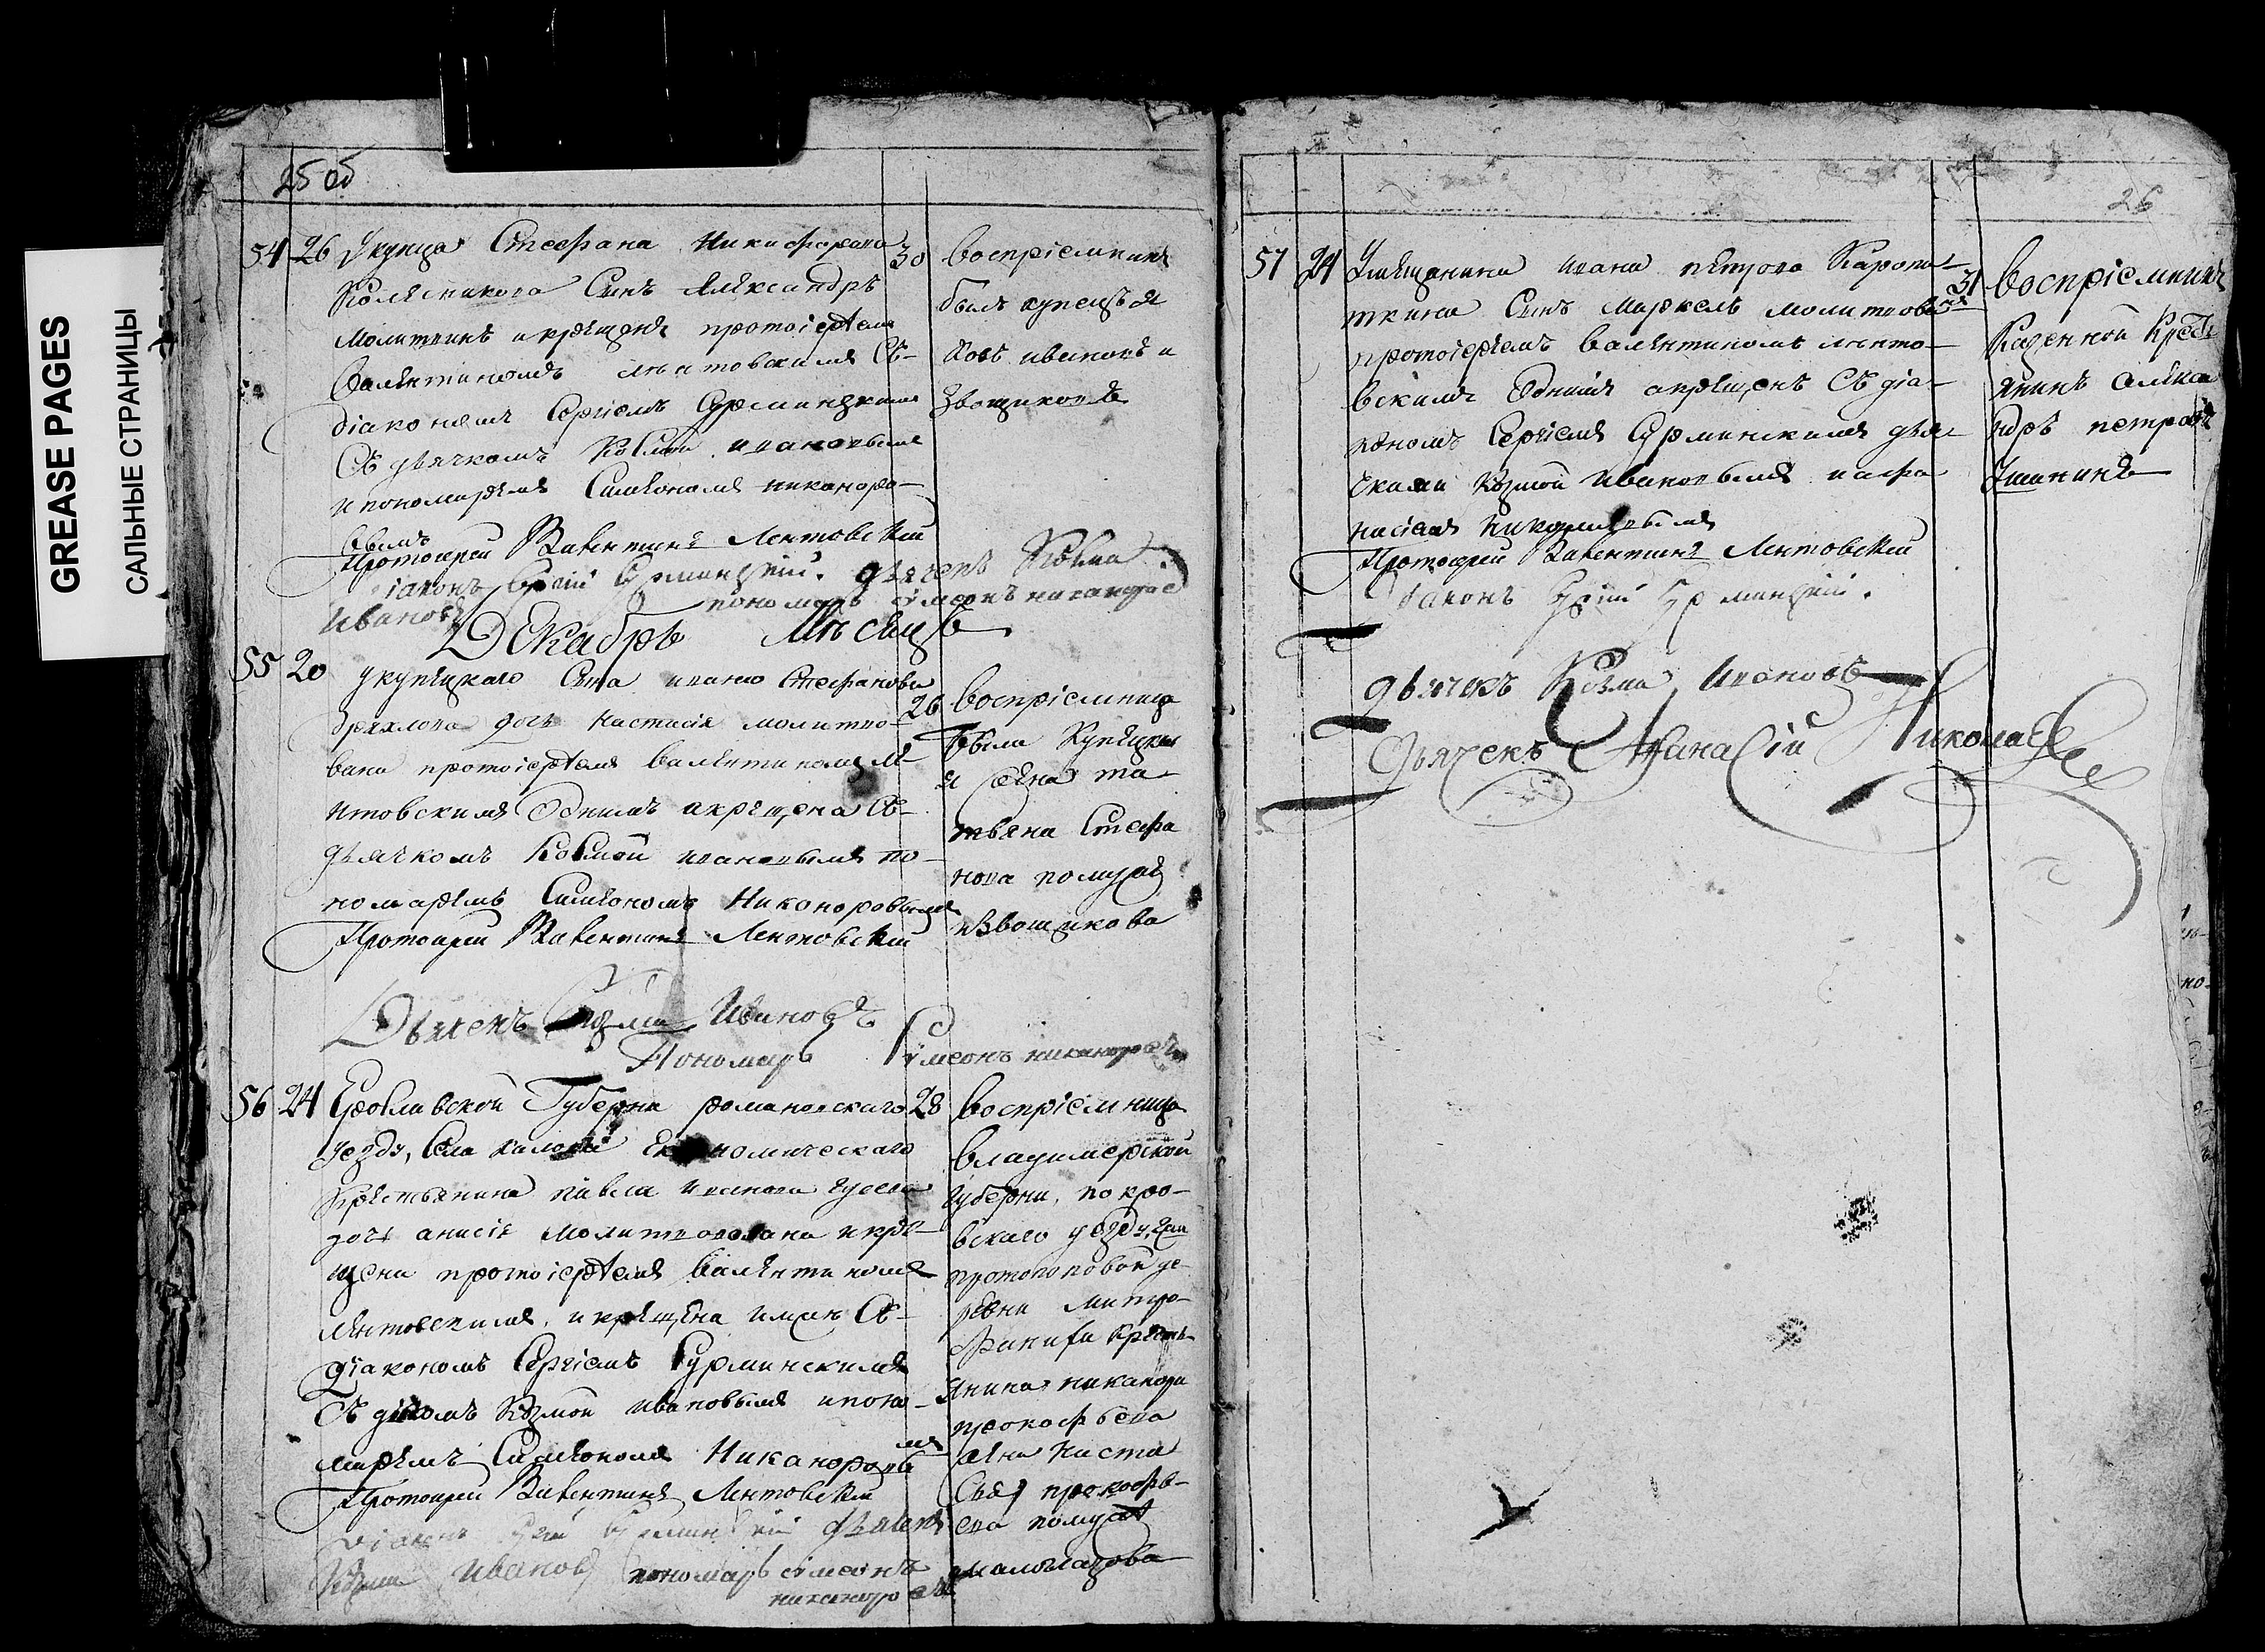 GREASE PAGES
САЛЬНЫЕ СТРАНИЦЫ
25 об
54 26 У купца Стефана Никифорова 30
Колесникова сынъ Александръ
молитвинъ и крещенъ протоіереемъ
Валентиномъ Лентовскимъ съ
діакономъ Сергіемъ Сурминскимъ
съ дьячкомъ Козмой Ивановымъ
и пономаремъ Симеономъ Никаноро-
вымъ
воспріемникъ
былъ купецъ Я
ковъ Ивановъ и
звощиковъ
Протоіерей Валентинъ Лентовскій
діаконъ Сергій Сурминскій. дьячекъ Козма
Ивановъ пономарь Симеонъ Никаноровъ
Декабрь Мѣсяцъ
55 20 у купецкаго сына Ивана Стефанова 26
дочь Настасія молитво-
вана протоіереемъ Валентиномъ Ле-
нтовскимъ однимъ а крещена съ
дьячкомъ Козмой Ивановымъ по-
номаремъ Симеономъ Никаноровымъ
воспріемница
была купецка
я жена та-
тьяна Стефа
нова по мужѣ
извощикова
Протоіерей Валентинъ Лентовскій
Дьячекъ Козма Ивановъ
Пономарь Симеонъ Никаноровъ
56 24 Ерославской Губерни романовскаго 28
уезду, села экономическаго
крестьянина Павла Иванова Гусева
дочь Анисія молитвована и кре-
щена протоіереемъ Валентиномъ
Лентовскимъ, и крещена имже съ
діакономъ Сергіемъ Сурминскимъ
съ Козмой Ивановымъ и поно-
маремъ Симеономъ Никаноровымъ
воспріемница
владимерской
губерни, покро-
вскаго уезду,
протопоповой де-
ревни Митро-
фаниха кресть-
янина Никанора
прокофьева
жена Наста
сья прокофь-
ева по мужѣ
маломахова
Протоіерей Валентинъ Лентовскій
діаконъ Сергій Сурминскій дьячекъ
Козма Ивановъ пономарь Симеонъ
Никаноровъ
26
57 24 У мещанина Ивана петрова Каропо- 31
ткина сынъ Маркелъ молитвованъ
протоіереемъ Валентиномъ Ленто-
вскимъ однимъ а крещенъ съ діа-
кономъ Сергіемъ Сурминскимъ дья-
чками Козмой Ивановымъ и Афа
насіемъ Никомаевымъ
воспріемникъ
казенной крестъ
янинъ Алекса
ндръ петровъ
Ушинъ
Протоіерей Валентинъ Лентовскій
діаконъ Сергій Сурминскій.
дьячекъ Козма Ивановъ
Дьячекъ Афанасій Никомаевъ